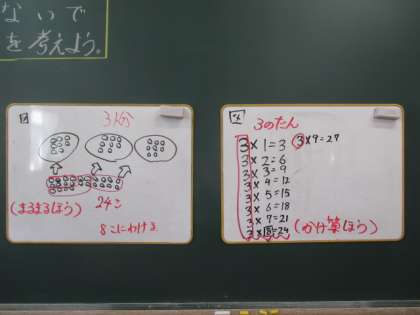 ないで
を考えよう。
3人分
(まるまるほう)
24こ
8こにわける
3のだん
3×1=3
3×2=6
3×3=9
3×4=12
3×5=15
3×6=18
3×7=21
3×8=24
3×9=27
(かけ算ほう)